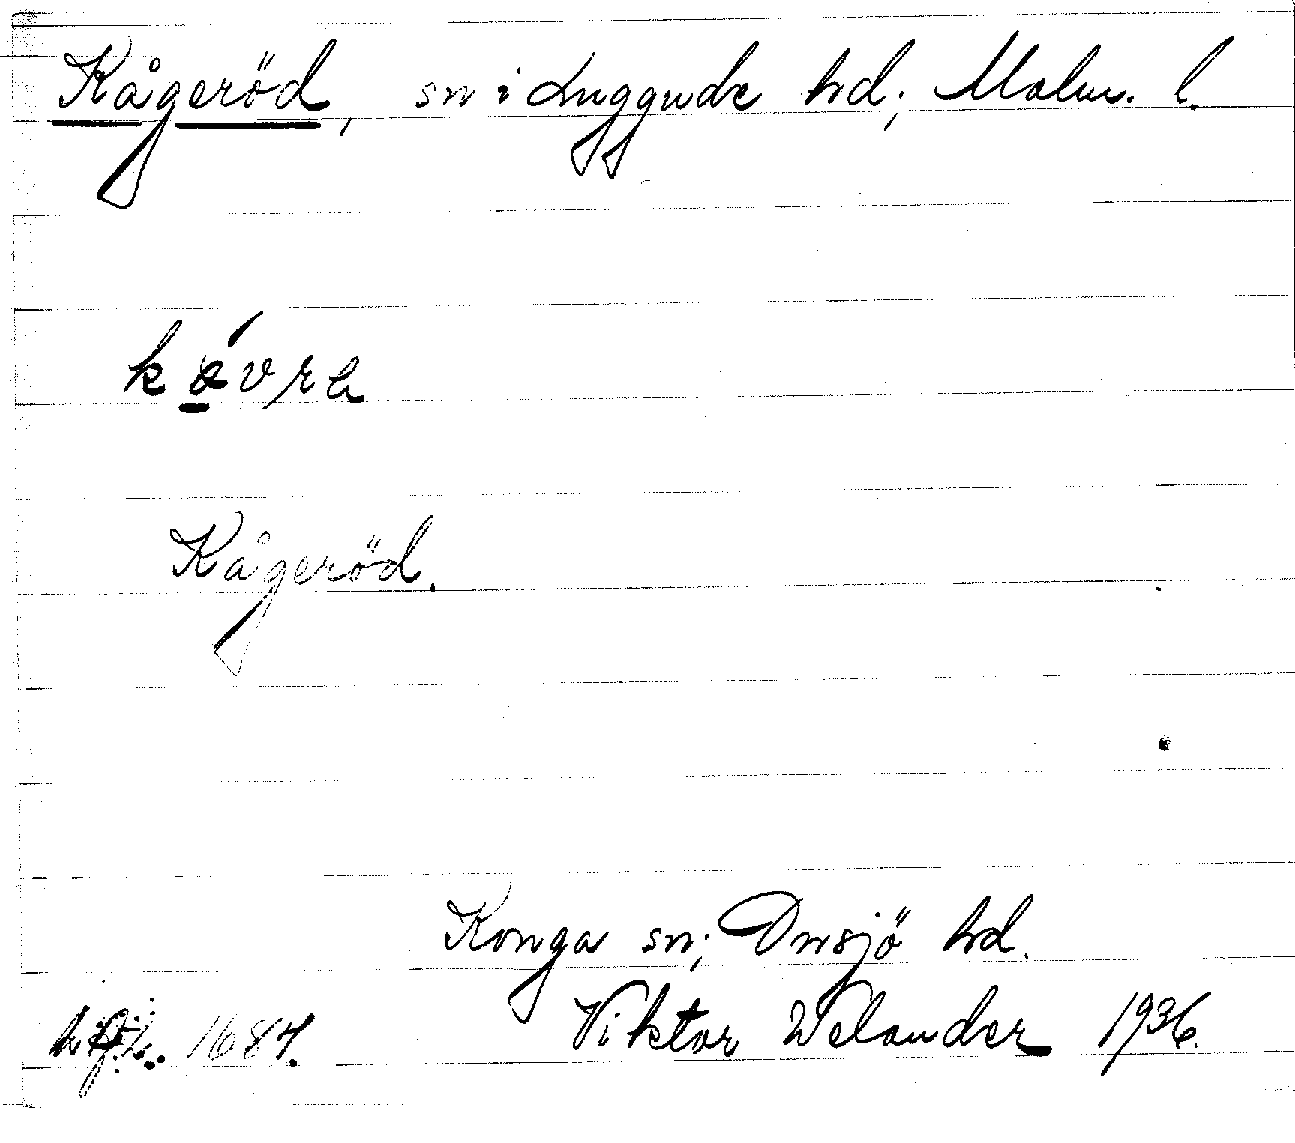 Kågeröd, sn i Luggude hd; Malm. l.
Kågeröd.
Konga sn; Onsjö hd.
1684. Viktor Welander 1936.